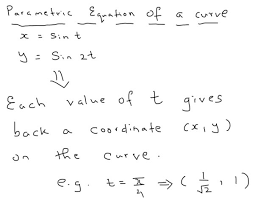 Parametric Equation of a curve
x = Sin t
y = Sin 2t
⇓
Each value of t gives
back a coordinate (x, y)
on the curve.
e.g. t = π/4 ⇒ (1/√2, 1)